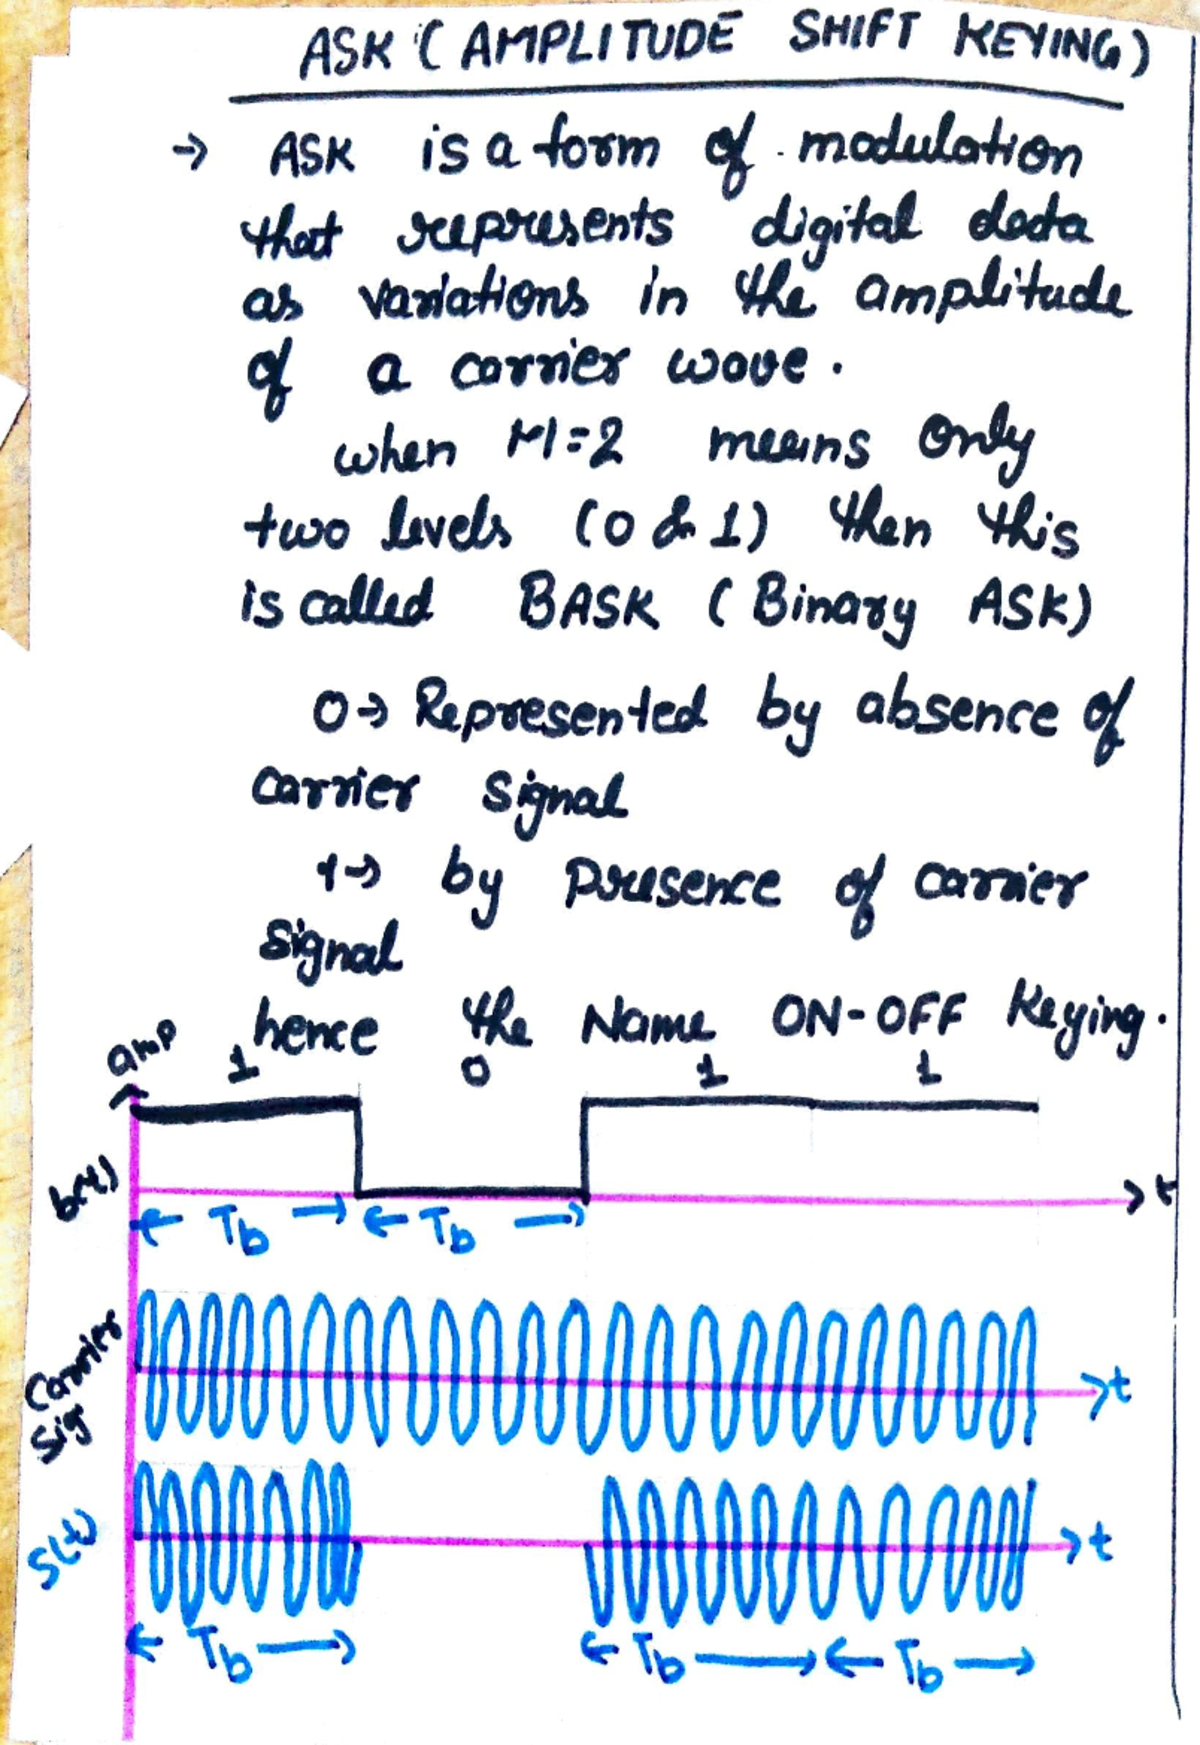 ASK (AMPLITUDE SHIFT KEYING)
→ ASK is a form of modulation
that represents digital data
as variations in the amplitude
of a carrier wave.
when M=2 means only
two levels (0 & 1) then this
is called BASK (Binary ASK)
0→ Represented by absence of
carrier signal
1→ by presence of carrier
signal
hence the Name ON-OFF Keying.
amp 1 0 1 1
b(t) t
← Tb → ← Tb →
Carrier
Sig t
S(t) t
← Tb → ← Tb → ← Tb →